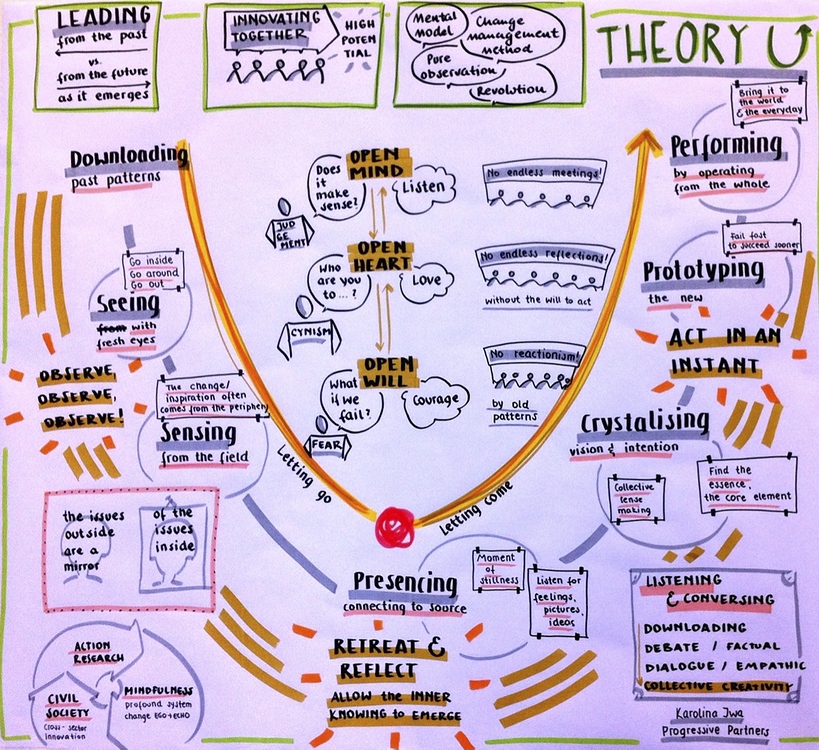 LEADING
from the past
vs.
from the future
as it emerges
INNOVATING
TOGETHER
HIGH
POTEN
TIAL
Mental
model
Change
management
method
Pure
observation
Revolution
THEORY U
Downloading
past patterns
Go inside
Go around
Go out
Seeing
from with
fresh eyes
OBSERVE,
OBSERVE,
OBSERVE!
The change/
inspiration often
comes from the periphery
Sensing
from the field
the issues
outside
are a
mirror
of the
issues
inside
ACTION
RESEARCH
CIVIL
SOCIETY
Cross-sector
innovation
MINDFULNESS
profound system
change EGO→ECHO
Does
it
make
sense?
OPEN
MIND
Listen
JUD
GE
MENT
Who
are you
to...?
OPEN
HEART
Love
CYNISM
What
if we
fail?
OPEN
WILL
Courage
FEAR
No endless meetings!
No endless reflections!
without the will to act
No reactionism!
by old
patterns
Letting go
Letting come
Presencing
connecting to source
Moment
of
stillness
Listen for
feelings,
pictures,
ideas
RETREAT &
REFLECT
ALLOW the INNER
KNOWING to EMERGE
Bring it to
the world
& the everyday
Performing
by operating
from the whole
Fail fast
to succeed sooner
Prototyping
the new
ACT IN AN
INSTANT
Crystalising
vision & intention
Collective
sense
making
Find the
essence,
the core element
LISTENING
& CONVERSING
DOWNLOADING
DEBATE / FACTUAL
DIALOGUE / EMPATHIC
COLLECTIVE CREATIVITY
Karolina Iwa
Progressive Partners